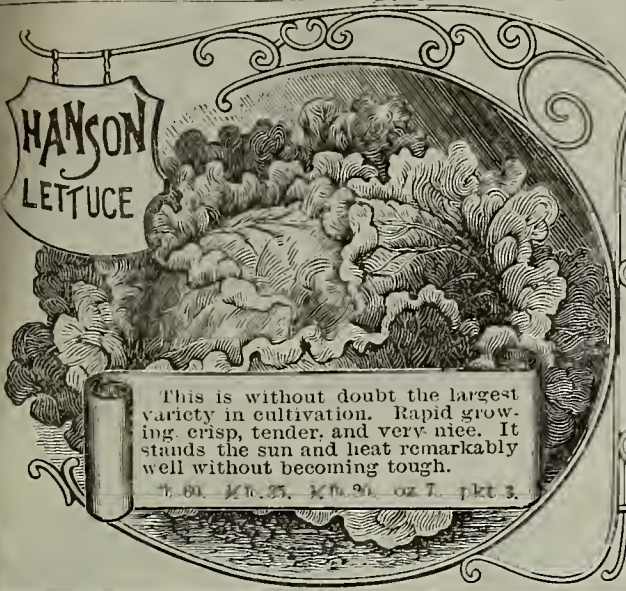 HANSON
LETTUCE
This is without doubt the largest
variety in cultivation. Rapid grow-
ing, crisp, tender, and very nice. It
stands the sun and heat remarkably
well without becoming tough.
60. 35, 20. oz 7. pkt 3.